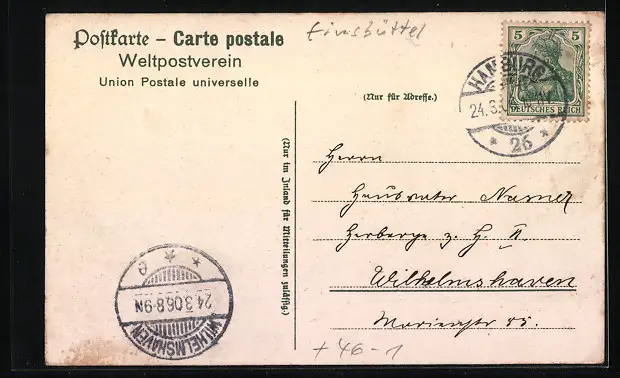 Postkarte – Carte postale
Weltpostverein
Union Postale universelle
Eimsbüttel
5 5
DEUTSCHES REICH
HAMBURG
24.3.
* 26 *
(Nur für Adresse.)
(Nur im Inland für Mitteilungen zulässig.)
Herrn
Hausvater
Herberge z. H. II
Wilhelmshaven
WILHELMSHAVEN
24.3.06.8-9N
* * e
+46-1